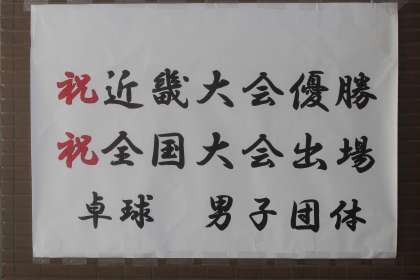 祝近畿大会優勝
祝全国大会出場
卓球　男子団体